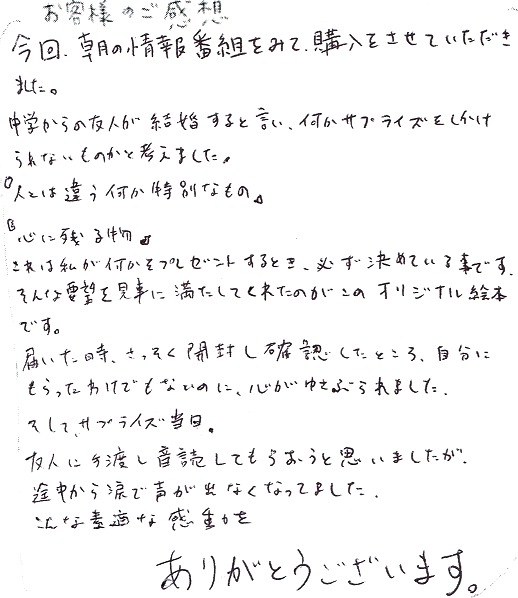 お客様のご感想
今回、朝の情報番組をみて、購入をさせていただき
ました。
中学からの友人が結婚すると言い、何かサプライズをしかけ
られないものかと考えました。
「人とは違う何か特別なもの。」
「心に残る物。」
これは私が何かをプレゼントするとき、必ず決めている事です。
そんな要望を見事に満たしてくれたのがこのオリジナル絵本
です。
届いた時、さっそく開封し確認したところ、自分に
もらったわけでもないのに、心がゆさぶられました。
そして、サプライズ当日。
友人に手渡し音読してもらおうと思いましたが、
途中から涙で声が出なくなってました。
こんな素適な感動を
ありがとうございます。